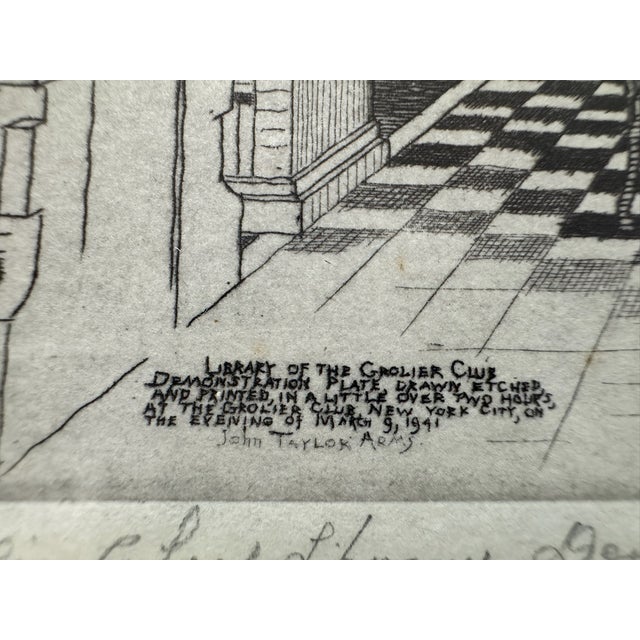 LIBRARY OF THE GROLIER CLUB
DEMONSTRATION PLATE, DRAWN, ETCHED,
AND PRINTED, IN A LITTLE OVER TWO HOURS,
AT THE GROLIER CLUB, NEW YORK CITY, ON
THE EVENING OF MARCH 9, 1941
John TAYLOR ARMS.
Library